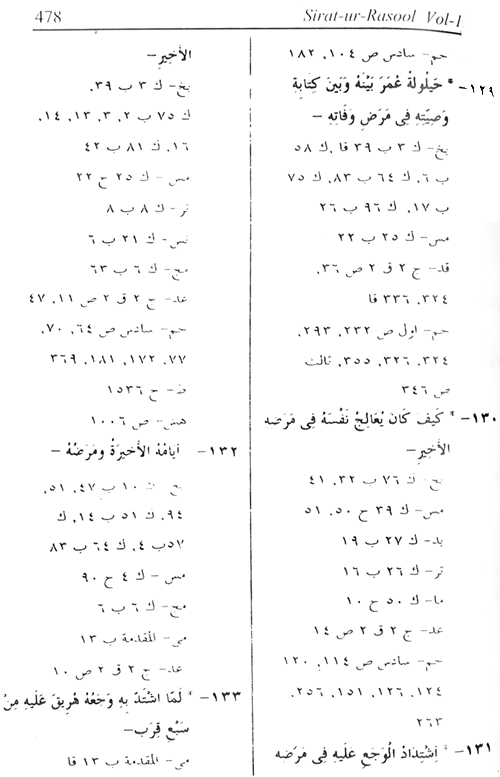 478 Sirat-ur-Rasool Vol-I
حم- سادس ص ١٠٤، ١٨٢
١٢٩- * حَيْلُولَةُ عُمَرَ بَيْنَهُ وَبَيْنَ كِتَابَةِ
وَصِيَّتِهِ فِى مَرَضِ وَفَاتِهِ -
بخ- ك ٣ ب ٣٩ قا، ك ٥٨
ب ٦، ك ٦٤ ب ٨٣، ك ٧٥
ب ١٧، ك ٩٦ ب ٢٦
مس- ك ٢٥ ب ٢٢
قد- ج ٢ ق ٢ ص ٣٦،
٣٢٤، ٣٣٦ قا
حم- اول ص ٢٣٢، ٢٩٣،
٣٢٤، ٣٢٦، ٣٥٥، ثالث
ص ٣٤٦
١٣٠- * كَيْفَ كَانَ يُعَالِجُ نَفْسَهُ فِى مَرَضه
الأَخِيرِ-
بخ- ك ٧٦ ب ٣٢، ٤١
مس- ك ٣٩ ح ٥٠، ٥١
بد- ك ٢٧ ب ١٩
تر- ك ٢٦ ب ١٦
ما- ك ٥٠ ح ١٠
عد- ج ٢ ق ٢ ص ١٤
حم- سادس ص ١١٤، ١٢٠
١٢٤، ١٢٦، ١٥١، ٢٥٦،
٢٦٣
١٣١- * اِشْتِدَادُ الْوَجَعِ عَلَيْهِ فِى مَرَضه
الأَخِيرِ-
بخ- ك ٣ ب ٣٩،
ك ٧٥ ب ٢، ٣، ١٣، ١٤،
١٦، ك ٨١ ب ٤٢
مس- ك ٢٥ ح ٢٢
تر- ك ٨ ب ٨
نس- ك ٢١ ب ٦
مج- ك ٦ ب ٦٣
عد- ج ٢ ق ٢ ص ١١، ٤٧
حم- سادس ص ٦٤، ٧٠،
٧٧، ١٧٢، ١٨١، ٣٦٩
ط- ح ١٥٣٦
هش- ص ١٠٠٦
١٣٢- أيامُهُ الأخيرَةُ ومَرَضُهُ -
بخ- ك ١٠ ب ٤٧، ٥١،
٩٤، ك ٥١ ب ١٤، ك
٥٧ ب ٤، ك ٦٤ ب ٨٣
مس- ك ٤ ح ٩٠
مج- ك ٦ ب ٦
مى- المقدمة ب ١٣
عد- ج ٢ ق ٢ ص ١٠
١٣٣- * لَمَّا اشْتَدَّ بِهِ وَجَعُهُ هُرِيقَ عَلَيْهِ مِنْ
سَبْعِ قِرَبٍ-
مى- المقدمة ب ١٣ قا